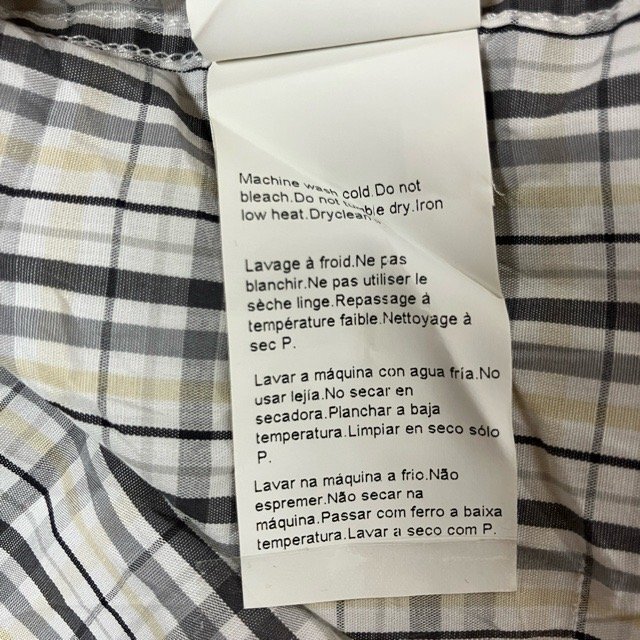 Machine wash cold.Do not
bleach.Do not tumble dry.Iron
low heat.Dryclean
Lavage à froid.Ne pas
blanchir.Ne pas utiliser le
sèche linge.Repassage à
température faible.Nettoyage à
sec P.
Lavar a máquina con agua fría.No
usar lejía.No secar en
secadora.Planchar a baja
temperatura.Limpiar en seco sólo
P.
Lavar na máquina a frio.Não
espremer.Não secar na
máquina.Passar com ferro a baixa
temperatura.Lavar a seco com P.